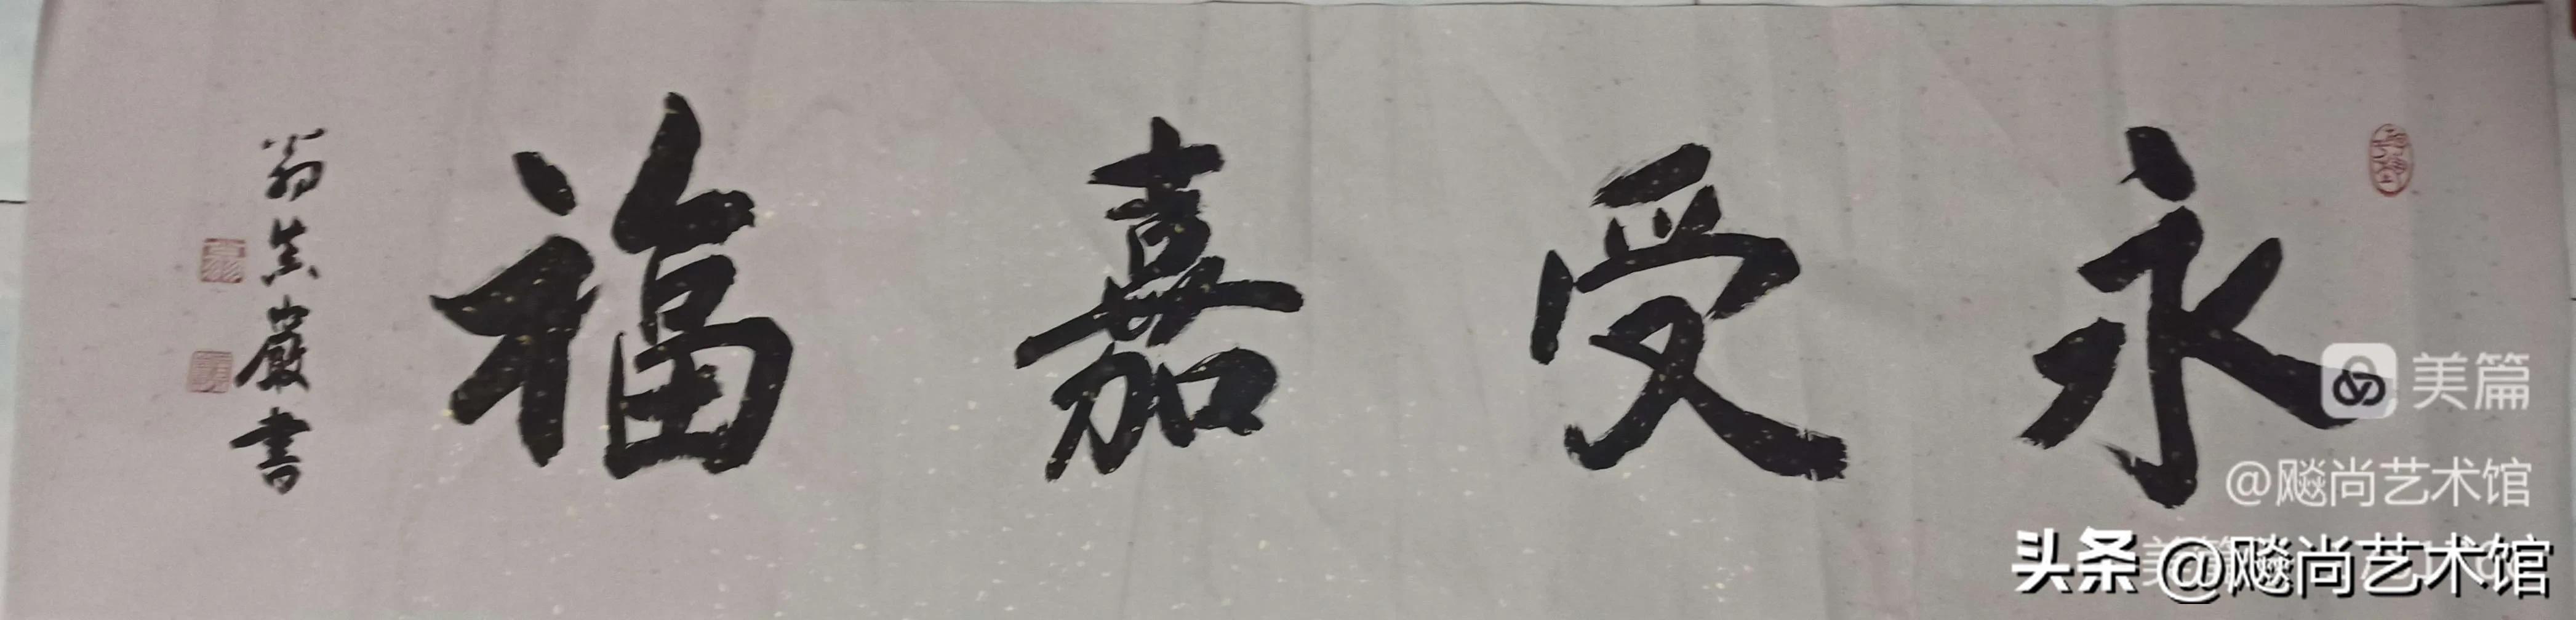 永受嘉福
翁志巖書
美篇
@飚尚艺术馆
头条 @飚尚艺术馆